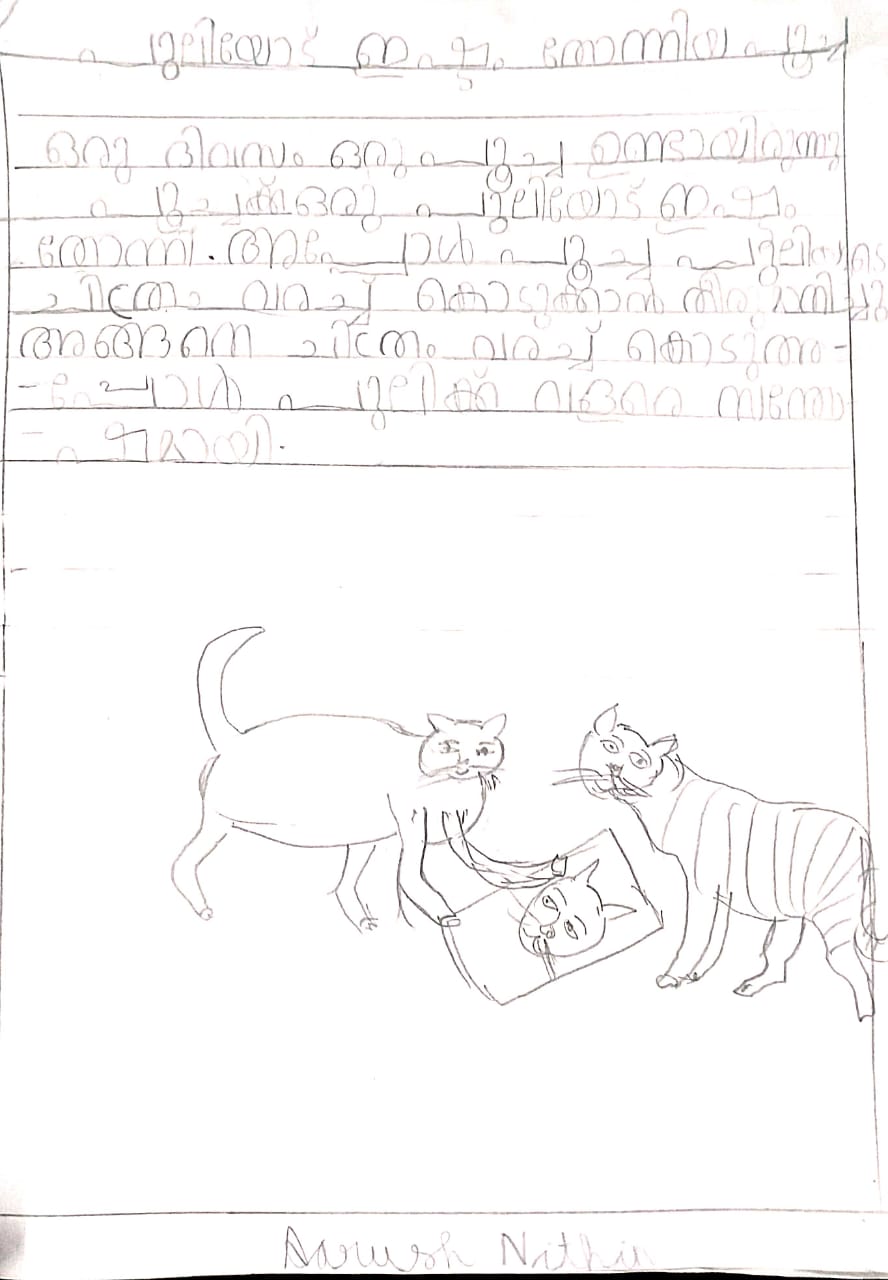 പുലിയോട് ഇഷ്ടം തോന്നിയ പൂച്ച
ഒരു ദിവസം ഒരു പൂച്ച ഉണ്ടായിരുന്നു
പൂച്ചക്ക് ഒരു പുലിയോട് ഇഷ്ടം
തോന്നി. അപ്പോൾ പൂച്ച പുലിയുടെ
ചിത്രം വരച്ച് കൊടുക്കാൻ തീരുമാനിച്ചു
അങ്ങനെ ചിത്രം വരച്ച് കൊടുത്ത-
-പ്പോൾ പുലിക്ക് വളരെ സന്തോ
-ഷമായി.
Aarush Nithin